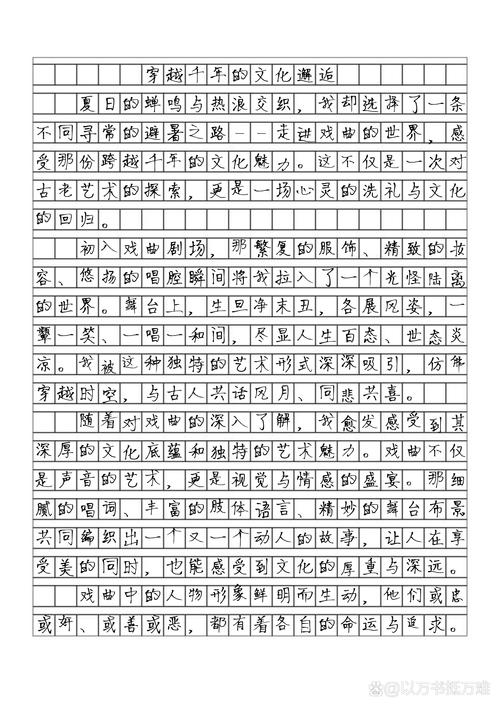 穿越千年的文化邂逅
夏日的蝉鸣与热浪交织，我却选择了一条
不同寻常的避暑之路--走进戏曲的世界，感
受那份跨越千年的文化魅力。这不仅是一次对
古老艺术的探索，更是一场心灵的洗礼与文化
的回归。
初入戏曲剧场，那繁复的服饰、精致的妆
容、悠扬的唱腔瞬间将我拉入了一个光怪陆离
的世界。舞台上，生旦净末丑，各展风姿，一
颦一笑、一唱一和间，尽显人生百态、世态炎
凉。我被这种独特的艺术形式深深吸引，仿佛
穿越时空，与古人共话风月、同悲共喜。
随着对戏曲的深入了解，我愈发感受到其
深厚的文化底蕴和独特的艺术魅力。戏曲不仅
是声音的艺术，更是视觉与情感的盛宴。那细
腻的唱词、丰富的肢体语言、精妙的舞台布景
共同编织出一个又一个动人的故事，让人在享
受美的同时，也能感受到文化的厚重与深远。
戏曲中的人物形象鲜明而生动，他们或忠
或奸、或善或恶，都有着各自的命运与追求。
@以万书抵万难